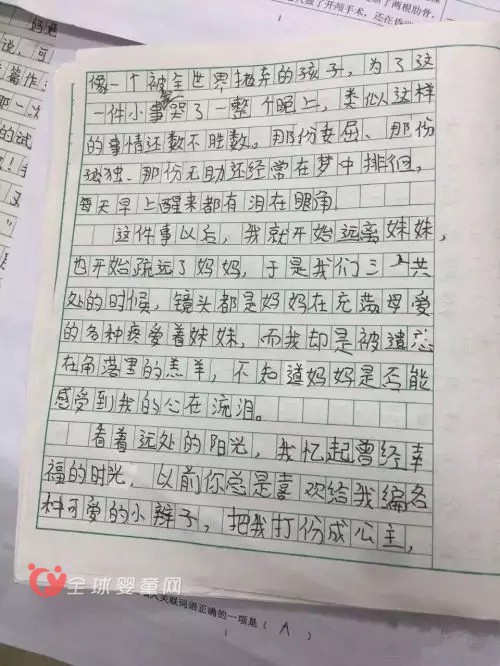 了两根肋骨，
做了开颅手术，还在昏
1
妈妈
说，可
篇作
那一次
的试
像一个被全世界抛弃的孩子，为了这
一件小事哭了一整个晚上，类似这样
的事情还数不胜数。那份委屈、那份
孤独、那份无助还经常在梦中排徊，
每天早上醒来都有泪在眼角。
这件事以后，我就开始远离妹妹，
也开始疏远了妈妈，于是我们三人共
处的时候，镜头都是妈妈在充满母爱
的各种疼爱着妹妹，而我却是被遗忘
在角落里的羔羊，不知道妈妈是否能
感受到我的心在流泪。
看着远处的阳光，我忆起曾经幸
福的时光，以前你总是喜欢给我编各
种可爱的小辫子，把我打份成公主，
全球婴童网
关联词语正确的一项是（ A ）
1